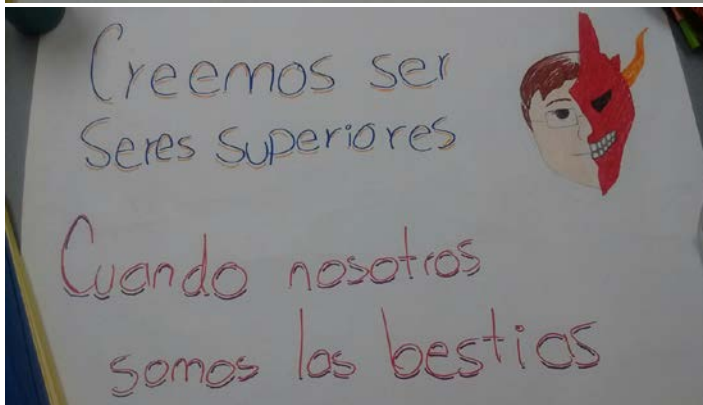 Creemos ser
Seres superiores
Cuando nosotros
somos las bestias